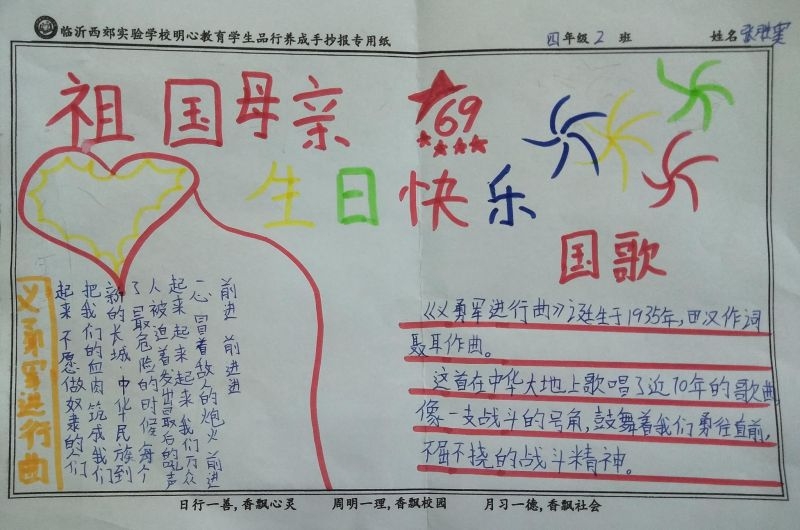 临沂西郊实验学校明心教育学生品行养成手抄报专用纸 四年级 2 班 姓名
祖国母亲
69
生日快乐
义勇军进行曲
起来 不愿做奴隶的人们
把我们的血肉 筑成我们
新的长城·中华民族到
了最危险的时候 每个
人被迫着发出最后的吼声
起来 起来 起来 我们万众
一心 冒着敌人的炮火 前进
前进 前进进
国歌
《义勇军进行曲》诞生于1935年,田汉作词
聂耳作曲。
这首在中华大地上歌唱了近70年的歌曲
像一支战斗的号角,鼓舞着我们勇往直前,
不屈不挠的战斗精神。
日行一善,香飘心灵 周明一理,香飘校园 月习一德,香飘社会